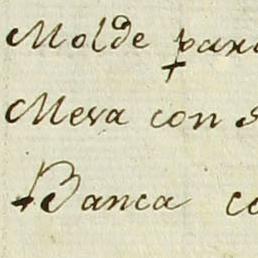 Molde para
Mesa con
Banca co